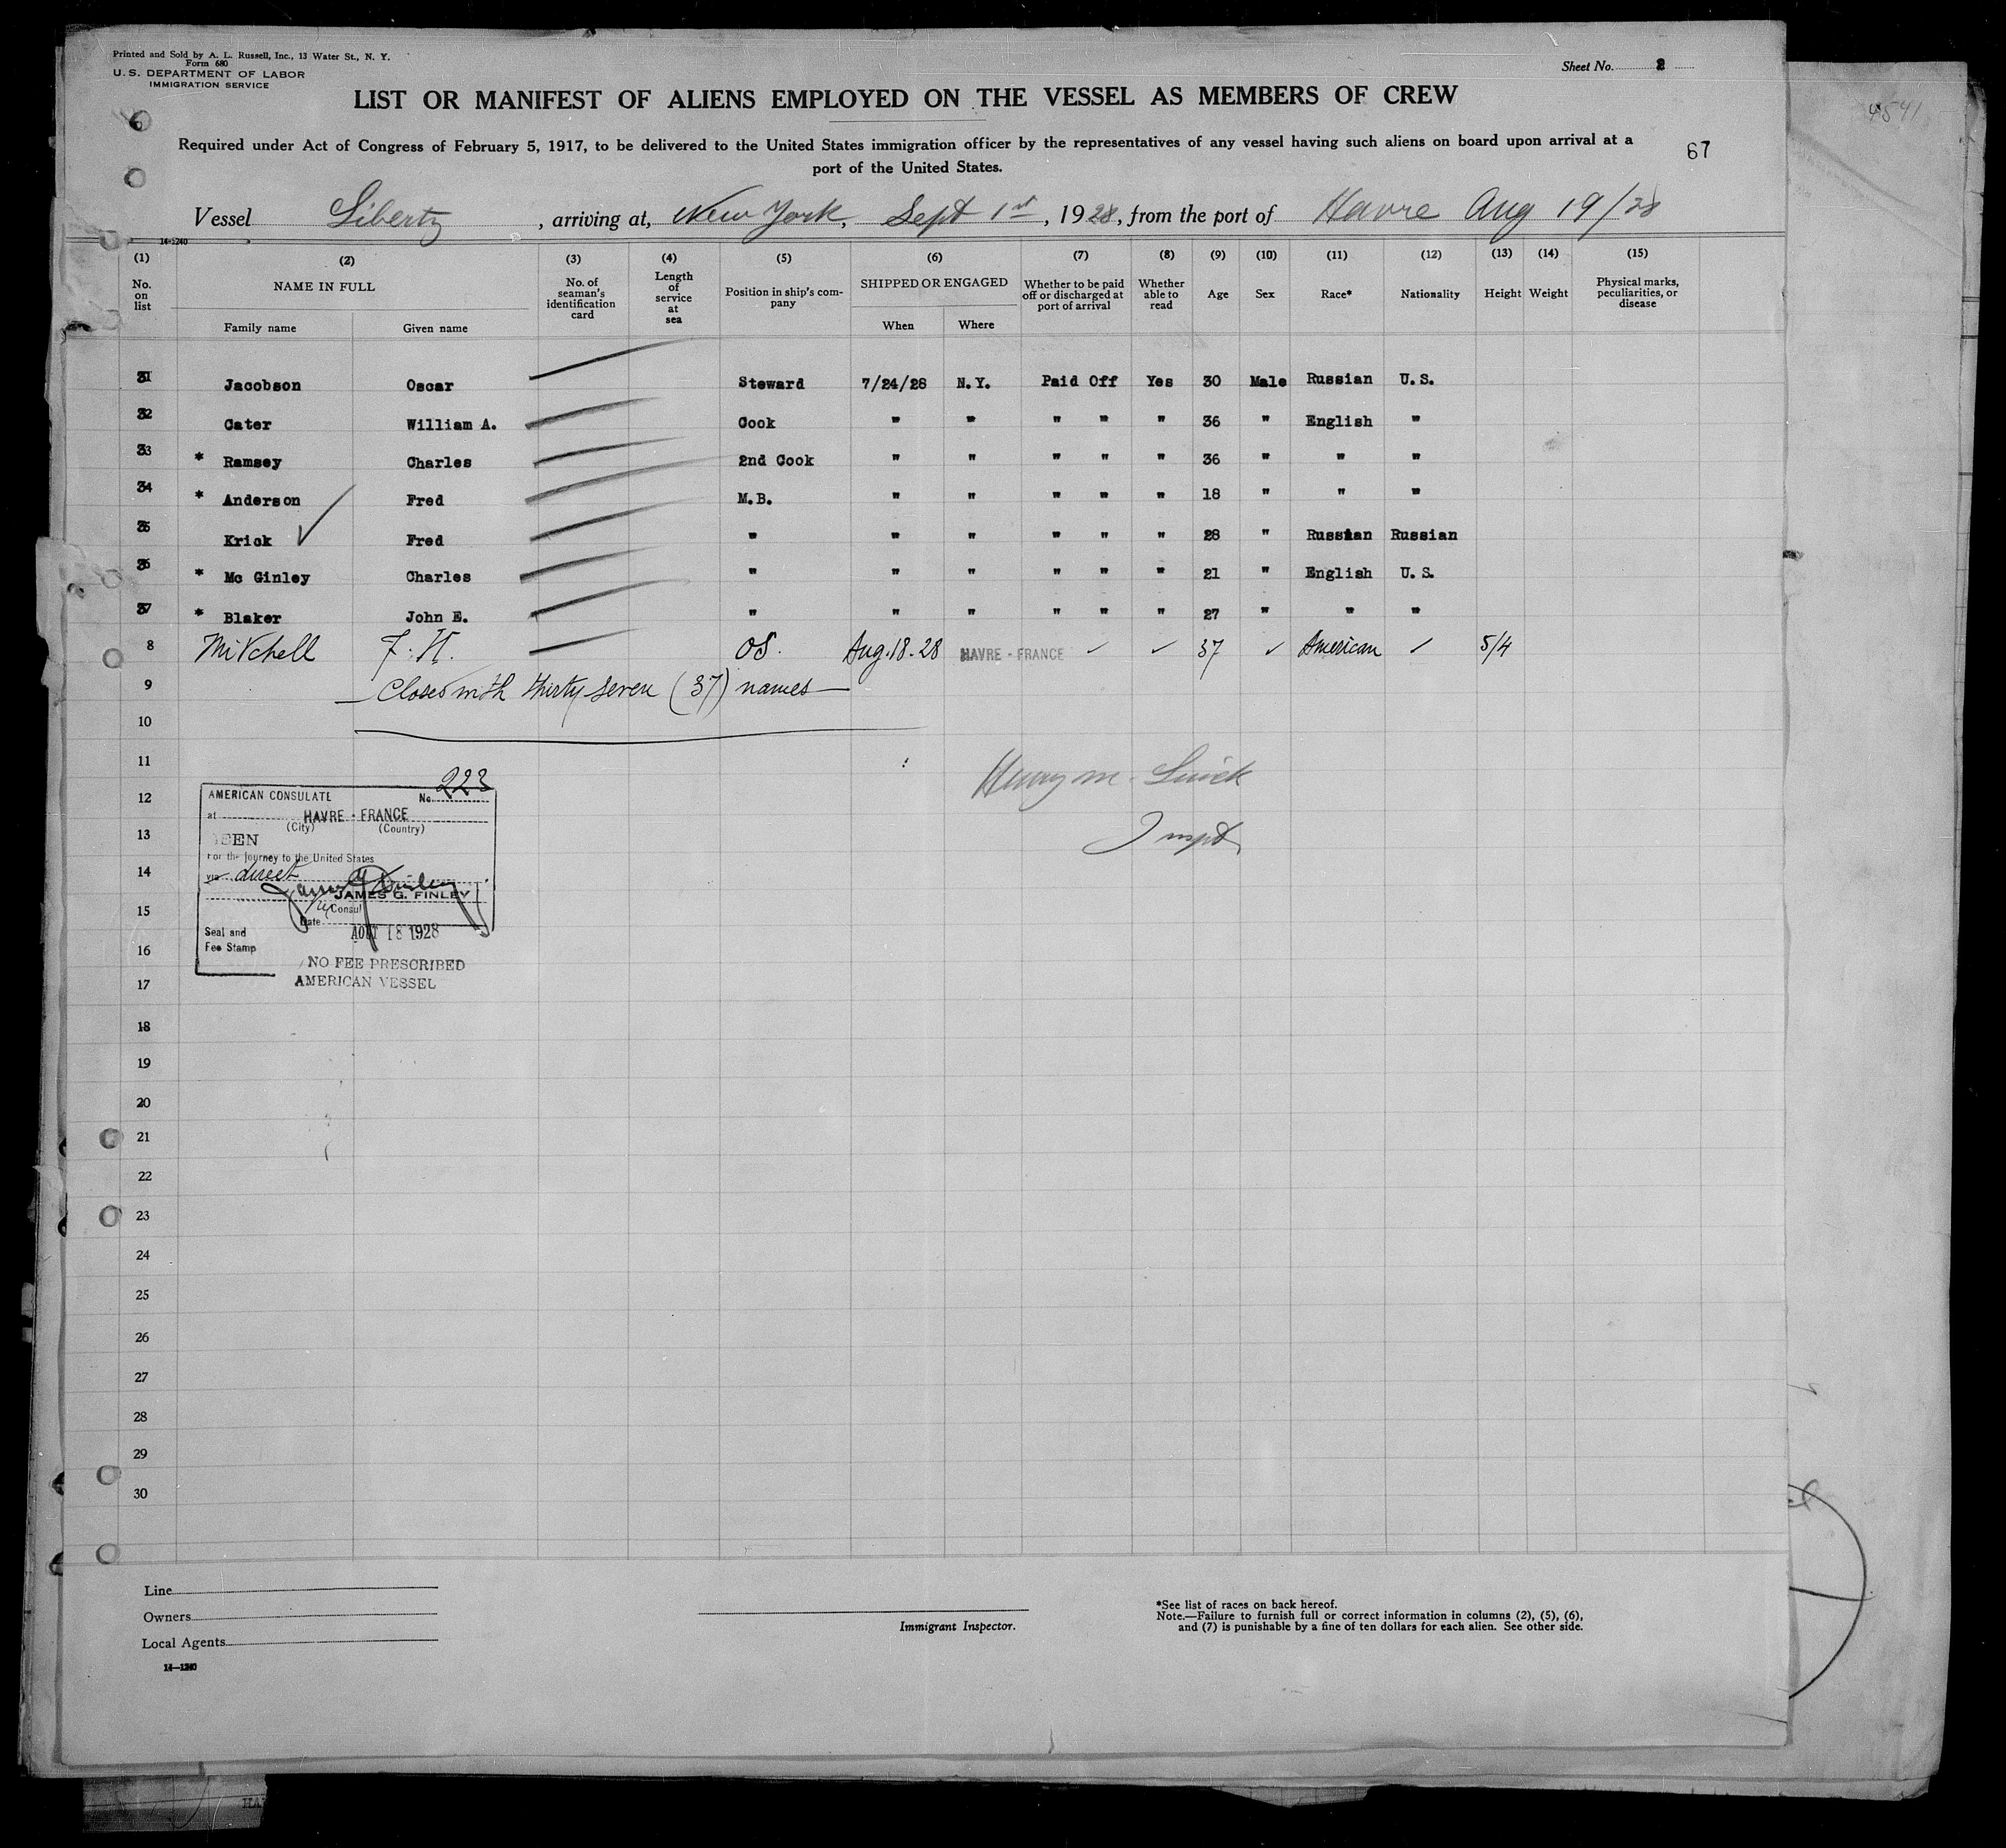 Printed and Sold by A. L. Russell, Inc., 13 Water St., N. Y.
Form 680
U. S. DEPARTMENT OF LABOR
IMMIGRATION SERVICE
Sheet No. 2
4541
LIST OR MANIFEST OF ALIENS EMPLOYED ON THE VESSEL AS MEMBERS OF CREW
Required under Act of Congress of February 5, 1917, to be delivered to the United States immigration officer by the representatives of any vessel having such aliens on board upon arrival at a
port of the United States.
67
Vessel Liberty, arriving at, New York, Sept 1st, 1928, from the port of Havre Aug 19/28
14-1240
(1) (2) (3) (4) (5) (6) (7) (8) (9) (10) (11) (12) (13) (14) (15)
No. on list NAME IN FULL No. of seaman's identification card Length of service at sea Position in ship's company SHIPPED OR ENGAGED Whether to be paid off or discharged at port of arrival Whether able to read Age Sex Race* Nationality Height Weight Physical marks, peculiarities, or disease
Family name Given name When Where
31 Jacobson Oscar Steward 7/24/28 N.Y. Paid Off Yes 30 Male Russian U.S.
32 Cater William A. Cook " " " " " 36 " English "
33 * Ramsey Charles 2nd Cook " " " " " 36 " " "
34 * Anderson Fred M.B. " " " " " 18 " " "
35 Krick Fred " " " " " " 28 " Russian Russian
36 * Mc Ginley Charles " " " " " " 21 " English U.S.
37 * Blaker John E. " " " " " " 27 " " "
8 Mitchell F. H. OS. Aug. 18-28 HAVRE - FRANCE ✓ ✓ 37 ✓ American ✓ 5/4
9 Closes with thirty seven (37) names
10
11
12
13
14
15
16
17
18
19
20
21
22
23
24
25
26
27
28
29
30
Henry M.
Inspt
AMERICAN CONSULATE No. 223
at HAVRE - FRANCE
(City) (Country)
SEEN
For the journey to the United States
via direct
JAMES G. FINLEY
Consul
Date AOUT 18 1928
Seal and
Fee Stamp
NO FEE PRESCRIBED
AMERICAN VESSEL
Line
Owners
Local Agents
14-1240
Immigrant Inspector.
*See list of races on back hereof.
Note.—Failure to furnish full or correct information in columns (2), (5), (6),
and (7) is punishable by a fine of ten dollars for each alien. See other side.